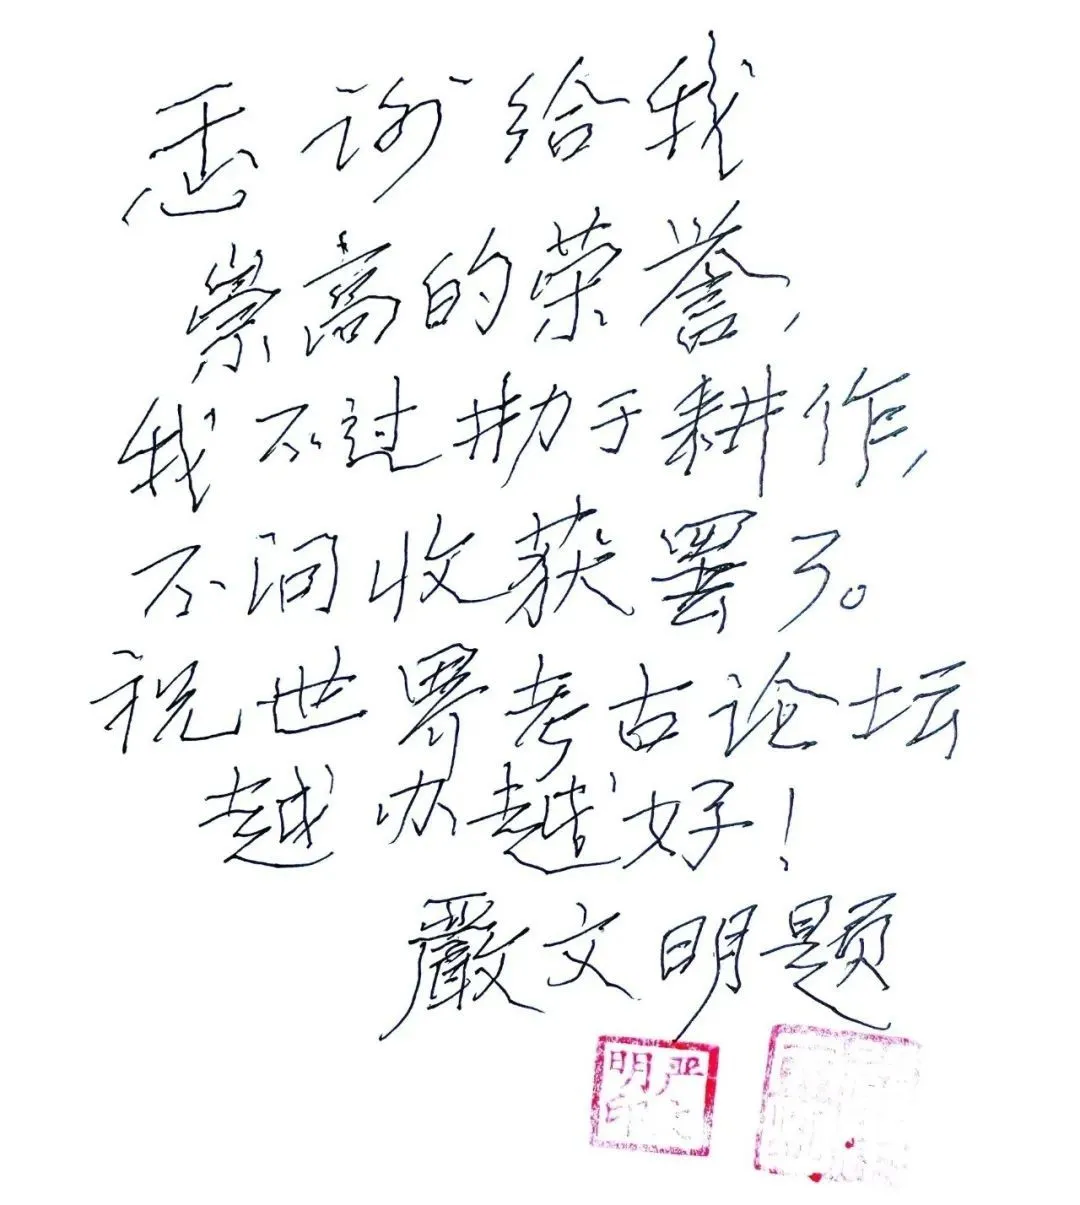 感谢给我
崇高的荣誉,
我不过勤于耕作,
不问收获罢了。
祝世界考古论坛
越办越好!
嚴文明题
严文
明印